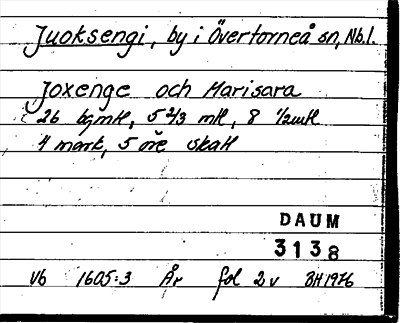 Juoksengi, by i Övertorneå sn, Nb.l.
Joxenge och Marisara
26 bgmtl, 5 2/3 mtl, 8 1/2mtl
4 mark, 5 öre skatt
DAUM
3138
Vb 1605:3 År fol 2v BH1976